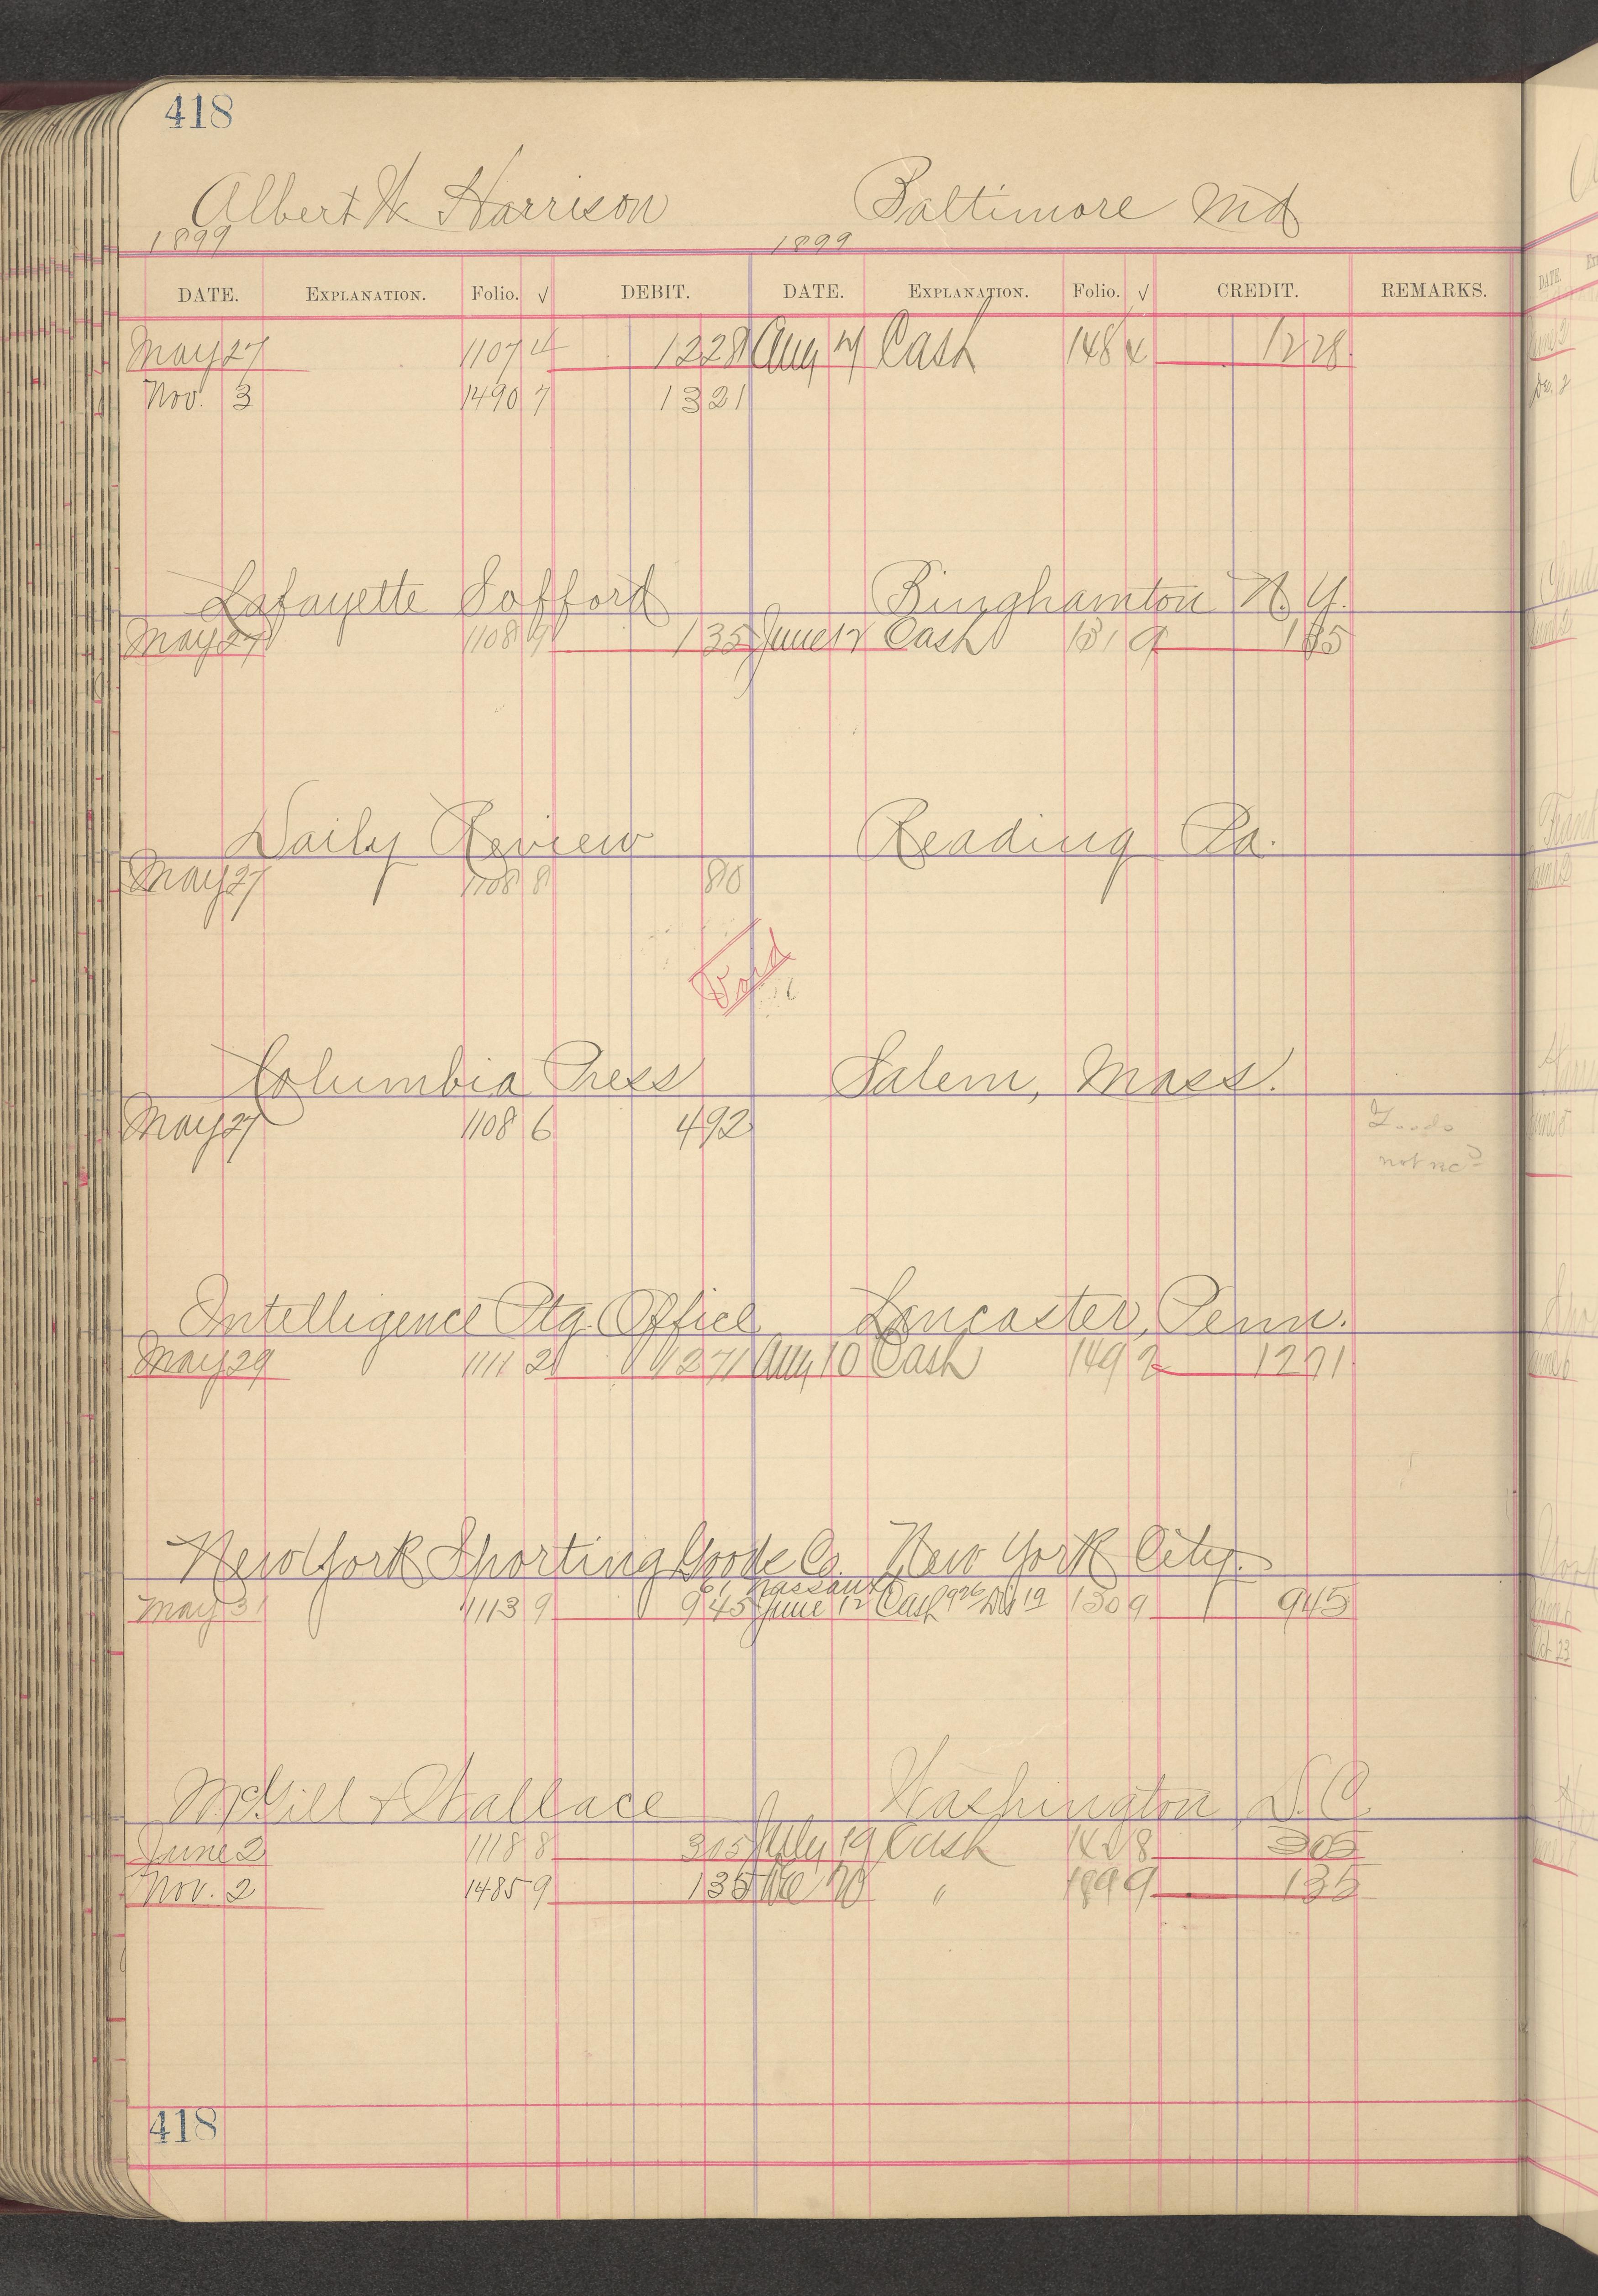 418
Albert W Harrison Baltimore Md
1899 1899
DATE. EXPLANATION. Folio. √ DEBIT. DATE. EXPLANATION. Folio. √ CREDIT. REMARKS.
May 27 1107 4 1228 Aug 4 Cash 148 1228
Nov. 3 1490 7 1321
Lafayette Sofford Binghamton N.Y.
May 27 1108 9 135 June 12 Cash 131 9 135
Daily Review Reading Pa.
May 27 1108 8 80
Void
Columbia Press Salem, Mass.
May 27 1108 6 492
Goods
not rec'd
Intelligence Ptg. Office Lancaster, Penn.
May 29 1111 2 1271 Aug 10 Cash 149 2 1271
New York Sporting Goods Co. New York City.
61 Nassau
May 31 1113 9 945 June 12 Cash 926 Dis 19 130 9 945
McGill & Wallace Washington D.C.
June 2 1118 8 305 July 19 Cash 142 8 305
Nov. 2 1485 9 135 " 199 9 135
418